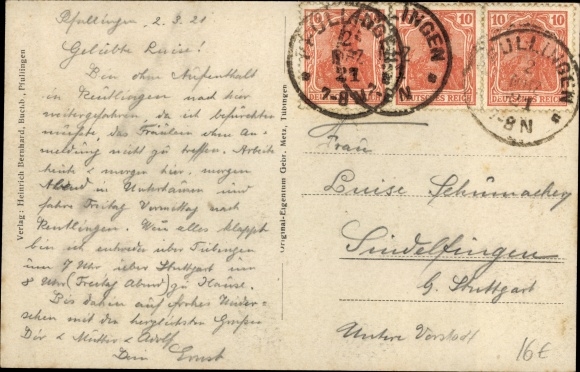 Pfullingen, 2.3.21
Geliebte Luise!
Bin ohne Aufenthalt
in Reutlingen nach hier
weitergefahren, da ich befürchten
müsste, das Fräulein ohne An-
meldung nicht zu treffen. Arbeite
heute & morgen hier, morgen
Abend in Unterhausen und
fahre Freitag Vormittag nach
Reutlingen. Wenn alles klappt
bin ich entweder über Tübingen
um 7 Uhr oder Stuttgart um
8 Uhr (Freitag Abend) zu Hause.
Bis dahin auf frohes Wieder-
sehen mit den herzlichsten Grüßen
Dir & Mutter & Adolf
Dein Ernst
Verlag: Heinrich Bernhard, Buchh., Pfullingen
Original-Eigentum Gebr. Metz, Tübingen
PFULLINGEN
2
21
7-8 N
10
10
10
DEUTSCHES REICH
Frau
Luise Schumacher
Sindelfingen
b. Stuttgart
Untere Vorstadt
16€